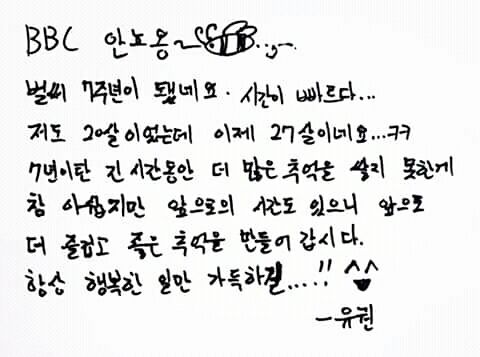 BBC 안뇨옹~
벌씨 7주년이 됐네요. 시간이 빠르다...
저도 20살이었는데 이제 27살이네요...ㅋㅋ
7년이란 긴 시간동안 더 많은 추억을 쌓지 못한게
참 아쉽지만 앞으로의 시간도 있으니 앞으로
더 즐겁고 좋은 추억을 만들어 갑시다.
항상 행복한 일만 가득하길...!! ^^
-유권